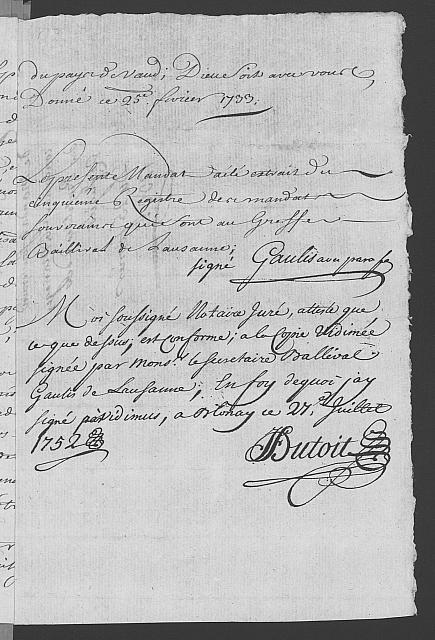 du pays de Vaud; Dieu soit avec vous.
Donné ce 25e. fevrier 1733.
Le présent Mandat a été extrait du
cinquième Registre des mandats
souverains qui sont au Greffe
Baillival de Lausanne;
signé Gaulis avec paraffe
Moi soussigné Notaire Juré, atteste que
ce que dessus, est conforme; a la Copie vidimée
signée par Monsr. le Secretaire Ballival
Gaulis de Lausanne; En foy dequoi j'ay
signé par vidimus, a Blonay ce 27.e Juillet
1752
Dutoit